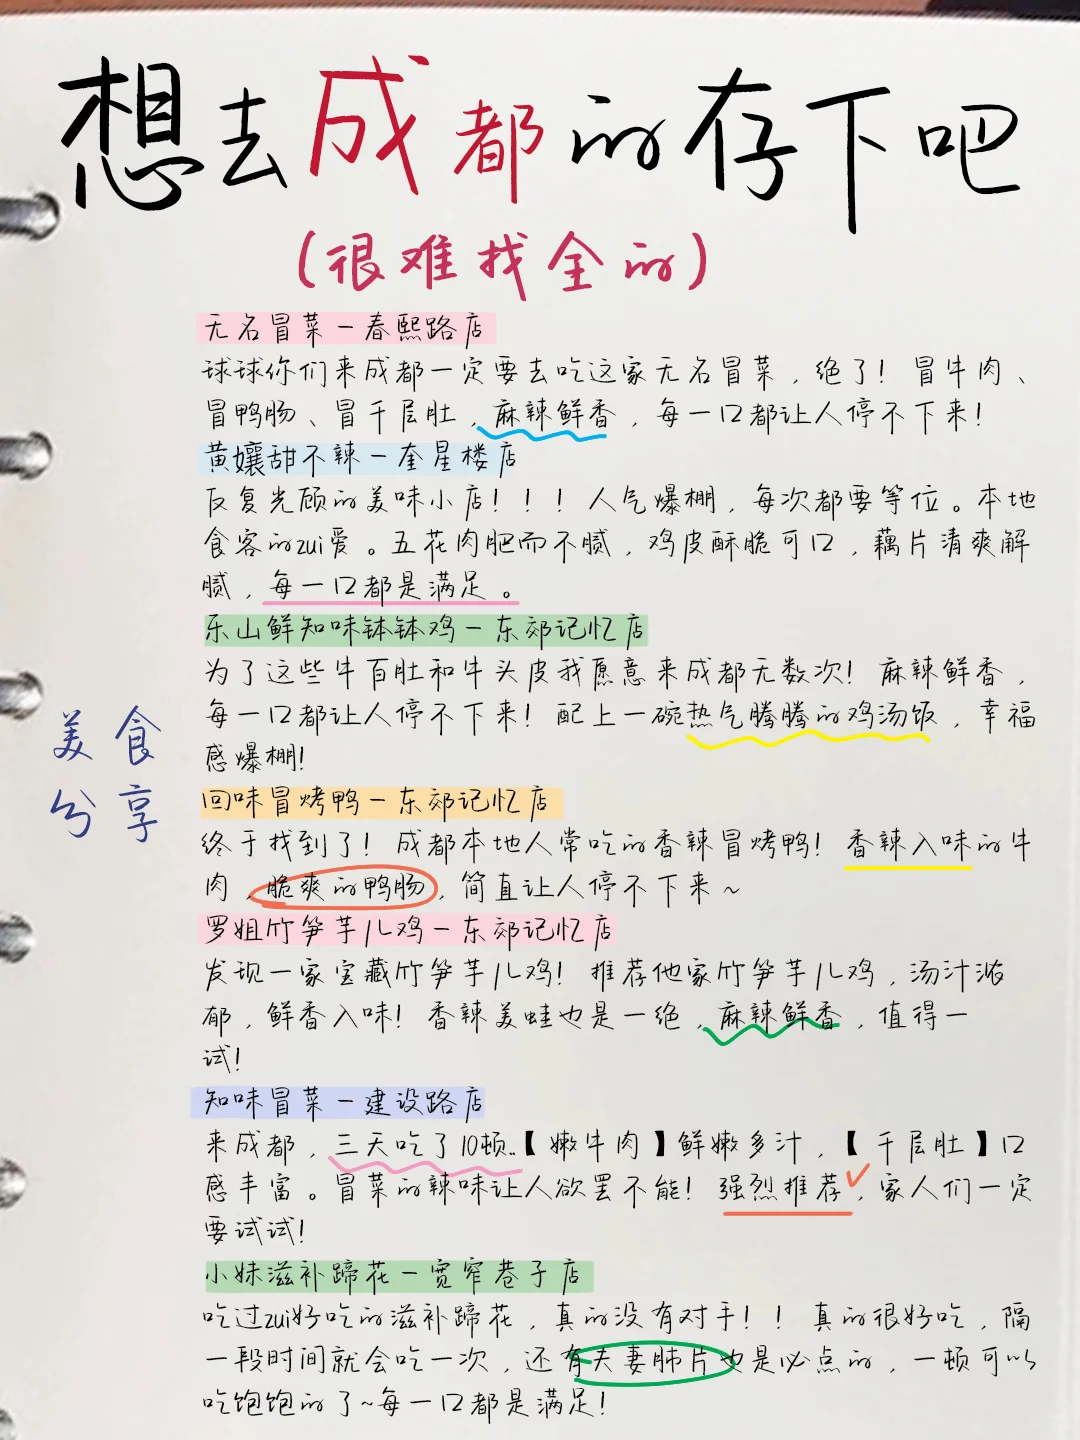 想去成都的存下吧
(很难找全的)
无名冒菜-春熙路店
球球你们来成都一定要去吃这家无名冒菜，绝了！冒牛肉、
冒鸭肠、冒千层肚，麻辣鲜香，每一口都让人停不下来！
黄孃甜不辣-奎星楼店
反复光顾的美味小店！！！人气爆棚，每次都要等位。本地
食客的zui爱。五花肉肥而不腻，鸡皮酥脆可口，藕片清爽解
腻，每一口都是满足。
乐山鲜知味钵钵鸡-东郊记忆店
为了这些牛百肚和牛头皮我愿意来成都无数次！麻辣鲜香，
每一口都让人停不下来！配上一碗热气腾腾的鸡汤饭，幸福
感爆棚！
美食
分享
回味冒烤鸭-东郊记忆店
终于找到了！成都本地人常吃的香辣冒烤鸭！香辣入味的牛
肉，脆爽的鸭肠，简直让人停不下来~
罗姐竹笋芋儿鸡-东郊记忆店
发现一家宝藏竹笋芋儿鸡！推荐他家竹笋芋儿鸡，汤汁浓
郁，鲜香入味！香辣美蛙也是一绝，麻辣鲜香，值得一
试！
知味冒菜-建设路店
来成都，三天吃了10顿..【嫩牛肉】鲜嫩多汁，【千层肚】口
感丰富。冒菜的辣味让人欲罢不能！强烈推荐，家人们一定
要试试！
小妹滋补蹄花-宽窄巷子店
吃过zui好吃的滋补蹄花，真的没有对手！！真的很好吃，隔
一段时间就会吃一次，还有夫妻肺片也是必点的，一顿可以
吃饱饱的了~每一口都是满足！